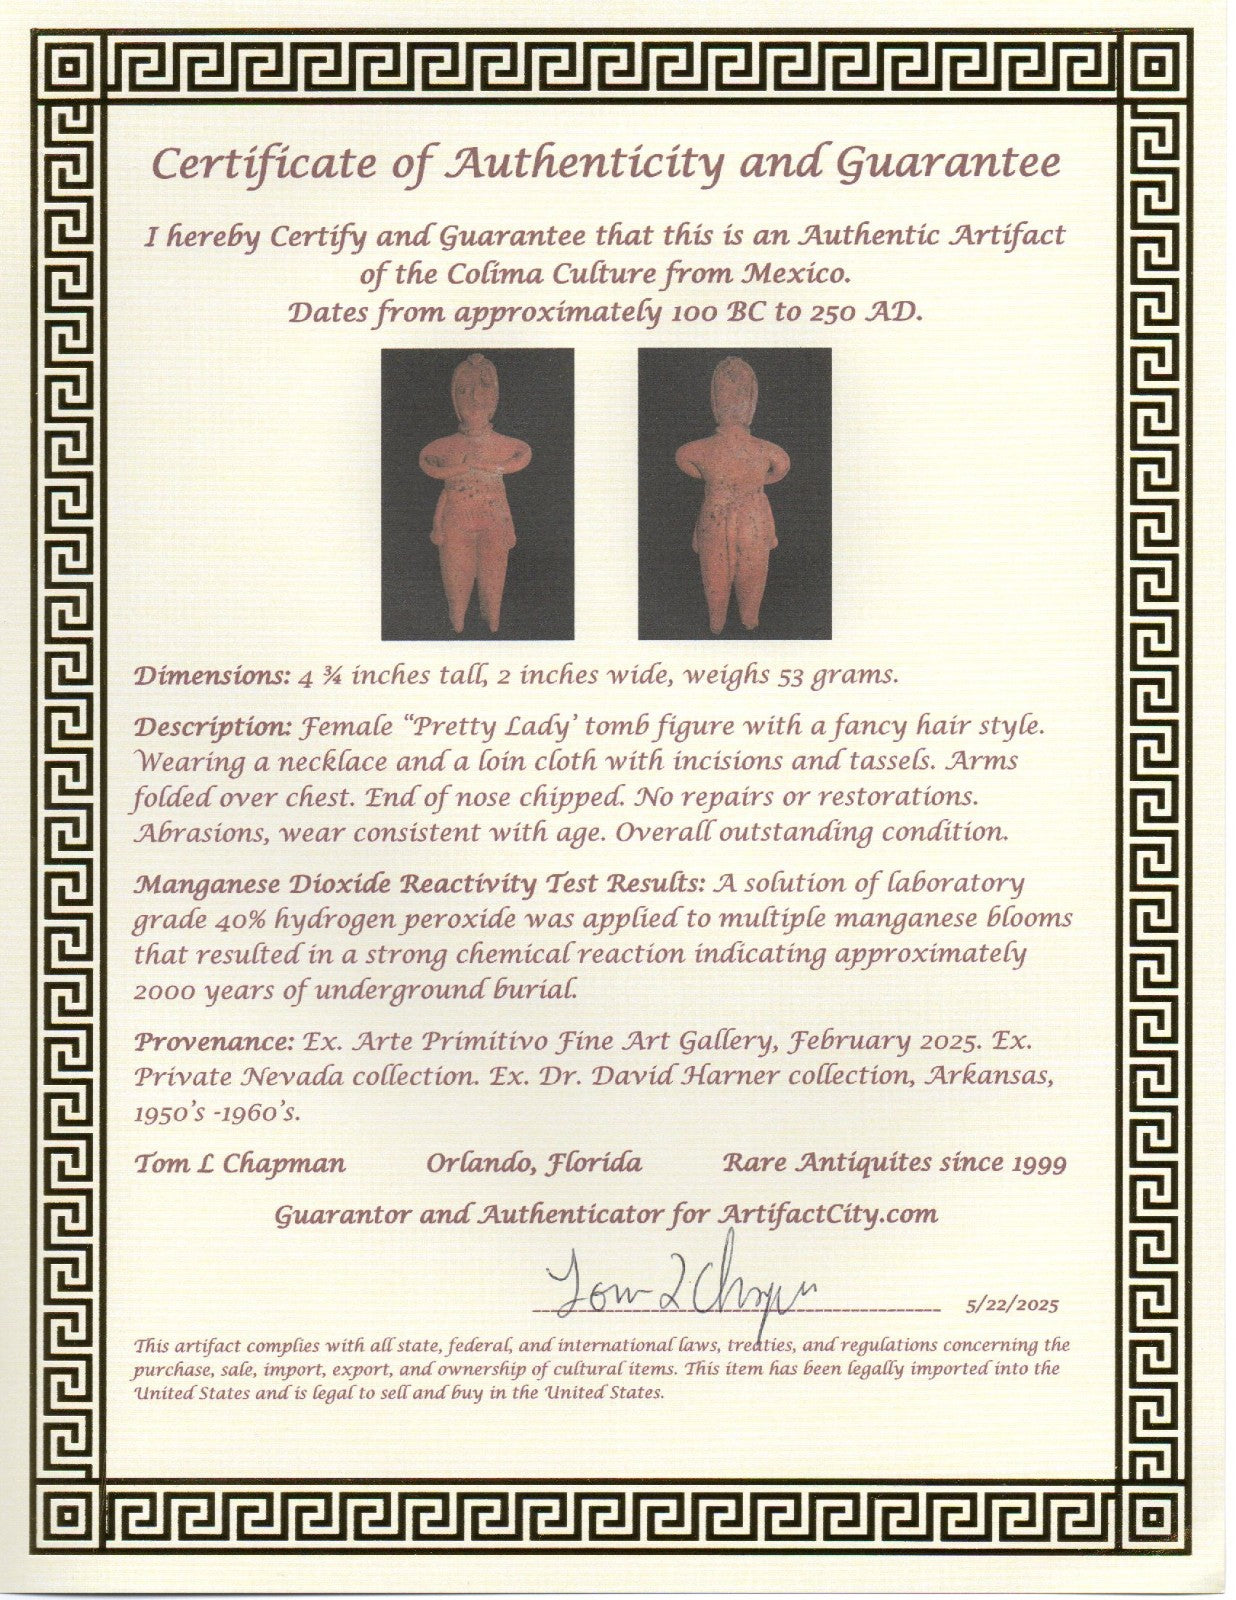 Certificate of Authenticity and Guarantee
I hereby Certify and Guarantee that this is an Authentic Artifact
of the Colima Culture from Mexico.
Dates from approximately 100 BC to 250 AD.
Dimensions: 4 ¾ inches tall, 2 inches wide, weighs 53 grams.
Description: Female “Pretty Lady’ tomb figure with a fancy hair style.
Wearing a necklace and a loin cloth with incisions and tassels. Arms
folded over chest. End of nose chipped. No repairs or restorations.
Abrasions, wear consistent with age. Overall outstanding condition.
Manganese Dioxide Reactivity Test Results: A solution of laboratory
grade 40% hydrogen peroxide was applied to multiple manganese blooms
that resulted in a strong chemical reaction indicating approximately
2000 years of underground burial.
Provenance: Ex. Arte Primitivo Fine Art Gallery, February 2025. Ex.
Private Nevada collection. Ex. Dr. David Harner collection, Arkansas,
1950’s -1960’s.
Tom L Chapman Orlando, Florida Rare Antiquites since 1999
Guarantor and Authenticator for ArtifactCity.com
Tom L Chapman 5/22/2025
This artifact complies with all state, federal, and international laws, treaties, and regulations concerning the
purchase, sale, import, export, and ownership of cultural items. This item has been legally imported into the
United States and is legal to sell and buy in the United States.